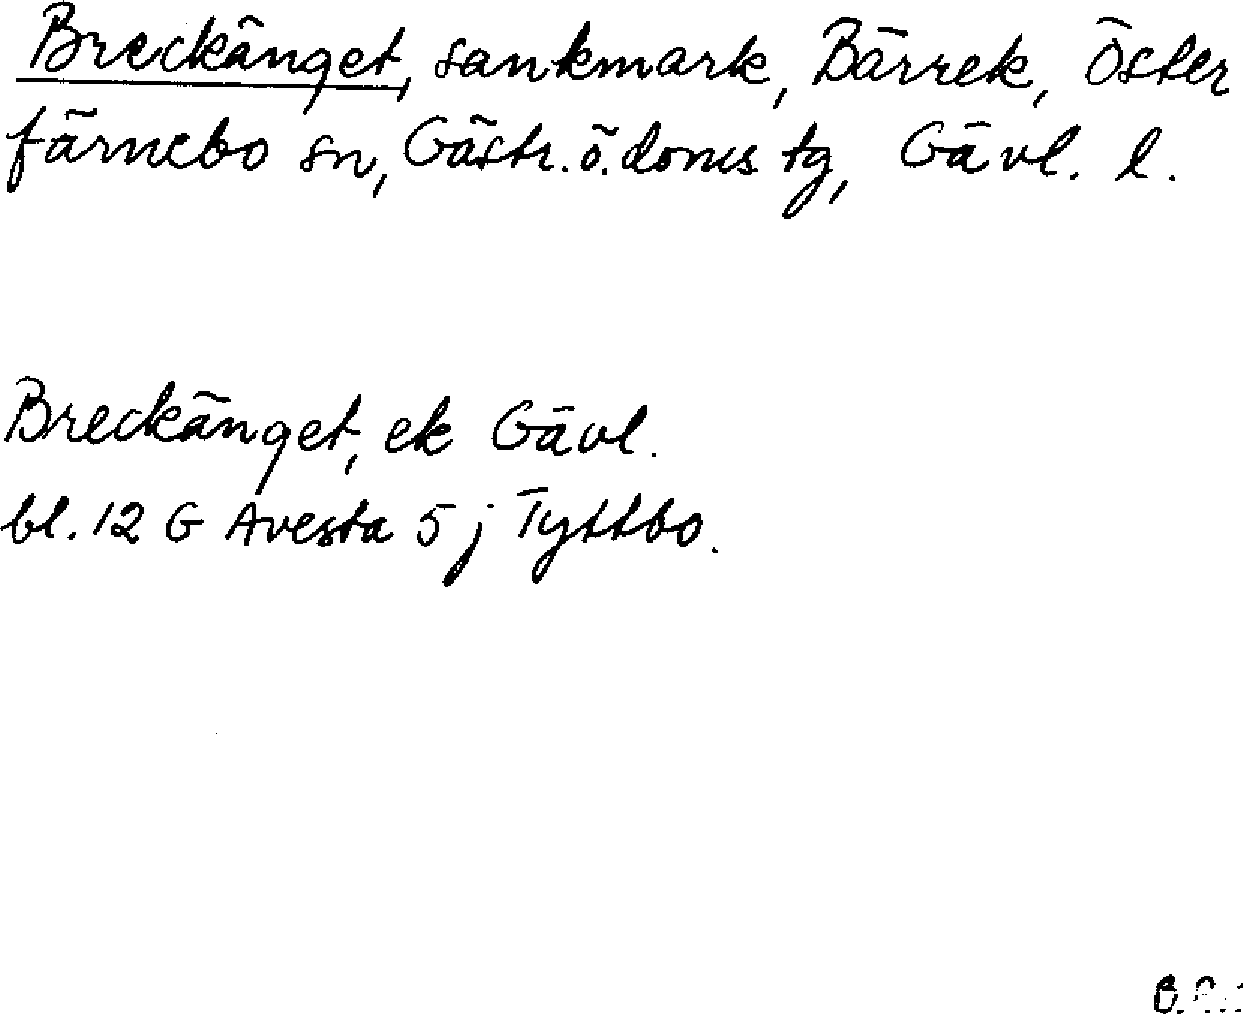 Breckänget, sankmark, Bärrek, Öster
färnebo sn, Gästr. ö. doms tg, Gävl. l.
Breckänget, ek Gävl.
bl. 12 G Avesta 5 j Tyttbo.